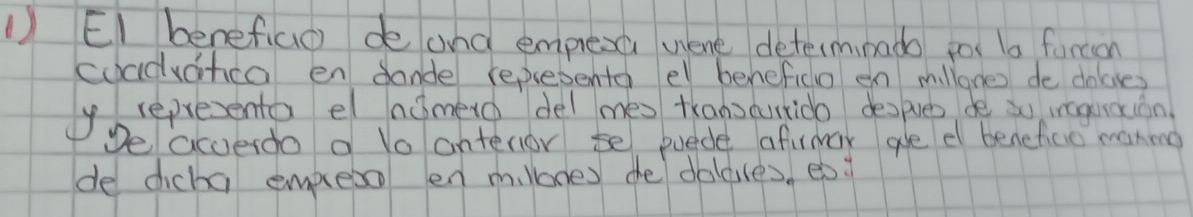 1) El beneficio de una empresa viene determinado por la función
cuadrática en donde representa el beneficio en millones de dolares
y representa el número del mes transcurrido despues de su inaguración.
De acuerdo a lo anterior se puede afirmar que el beneficio maximo
de dicha empresa en millones de dolares, es: